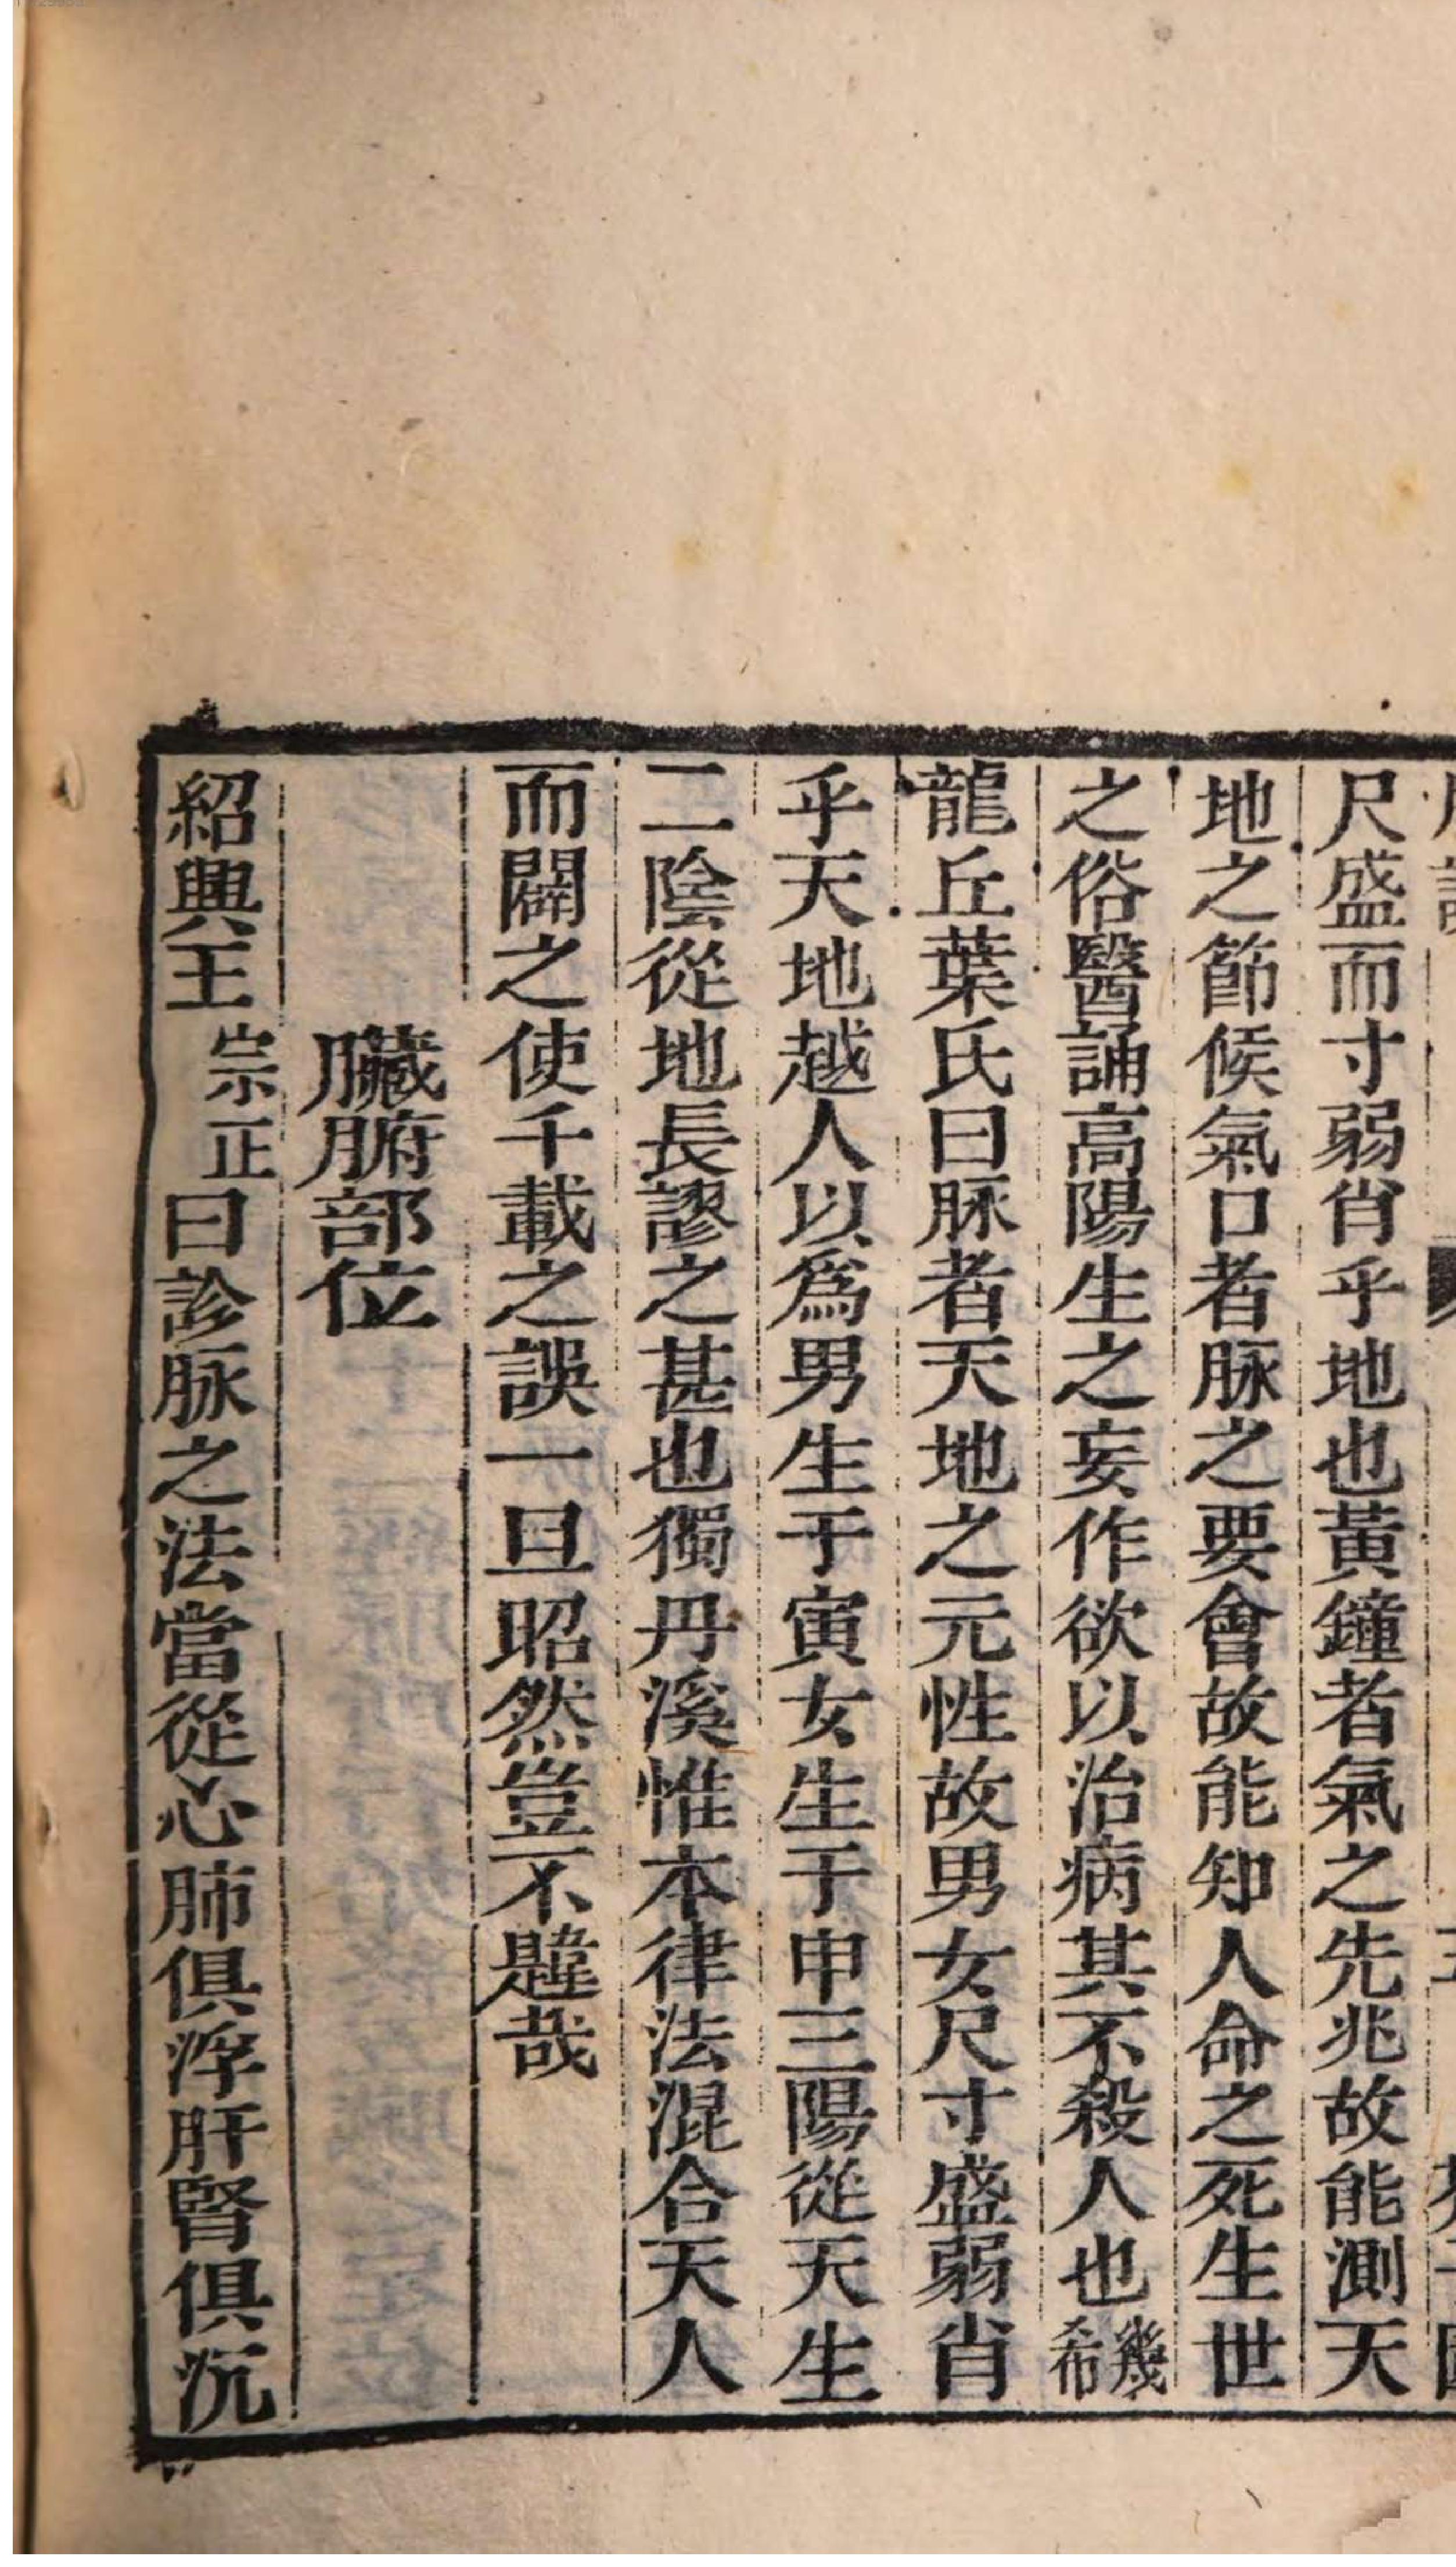 尺盛而寸弱肖乎地也黃鐘者氣之先兆故能測天
地之節候氣口者脉之要會故能知人命之死生世
之俗醫誦高陽生之妄作欲以治病其不殺人也幾希
龍丘葉氏曰脉者天地之元性故男女尺寸盛弱肖
乎天地越人以爲男生于寅女生于申三陽從天生
二陰從地長謬之甚也獨丹溪惟本律法混合天人
而闢之使千載之誤一旦昭然豈不韙哉
臟腑部位
紹興王宗正曰診脉之法當從心肺俱浮肝腎俱沉